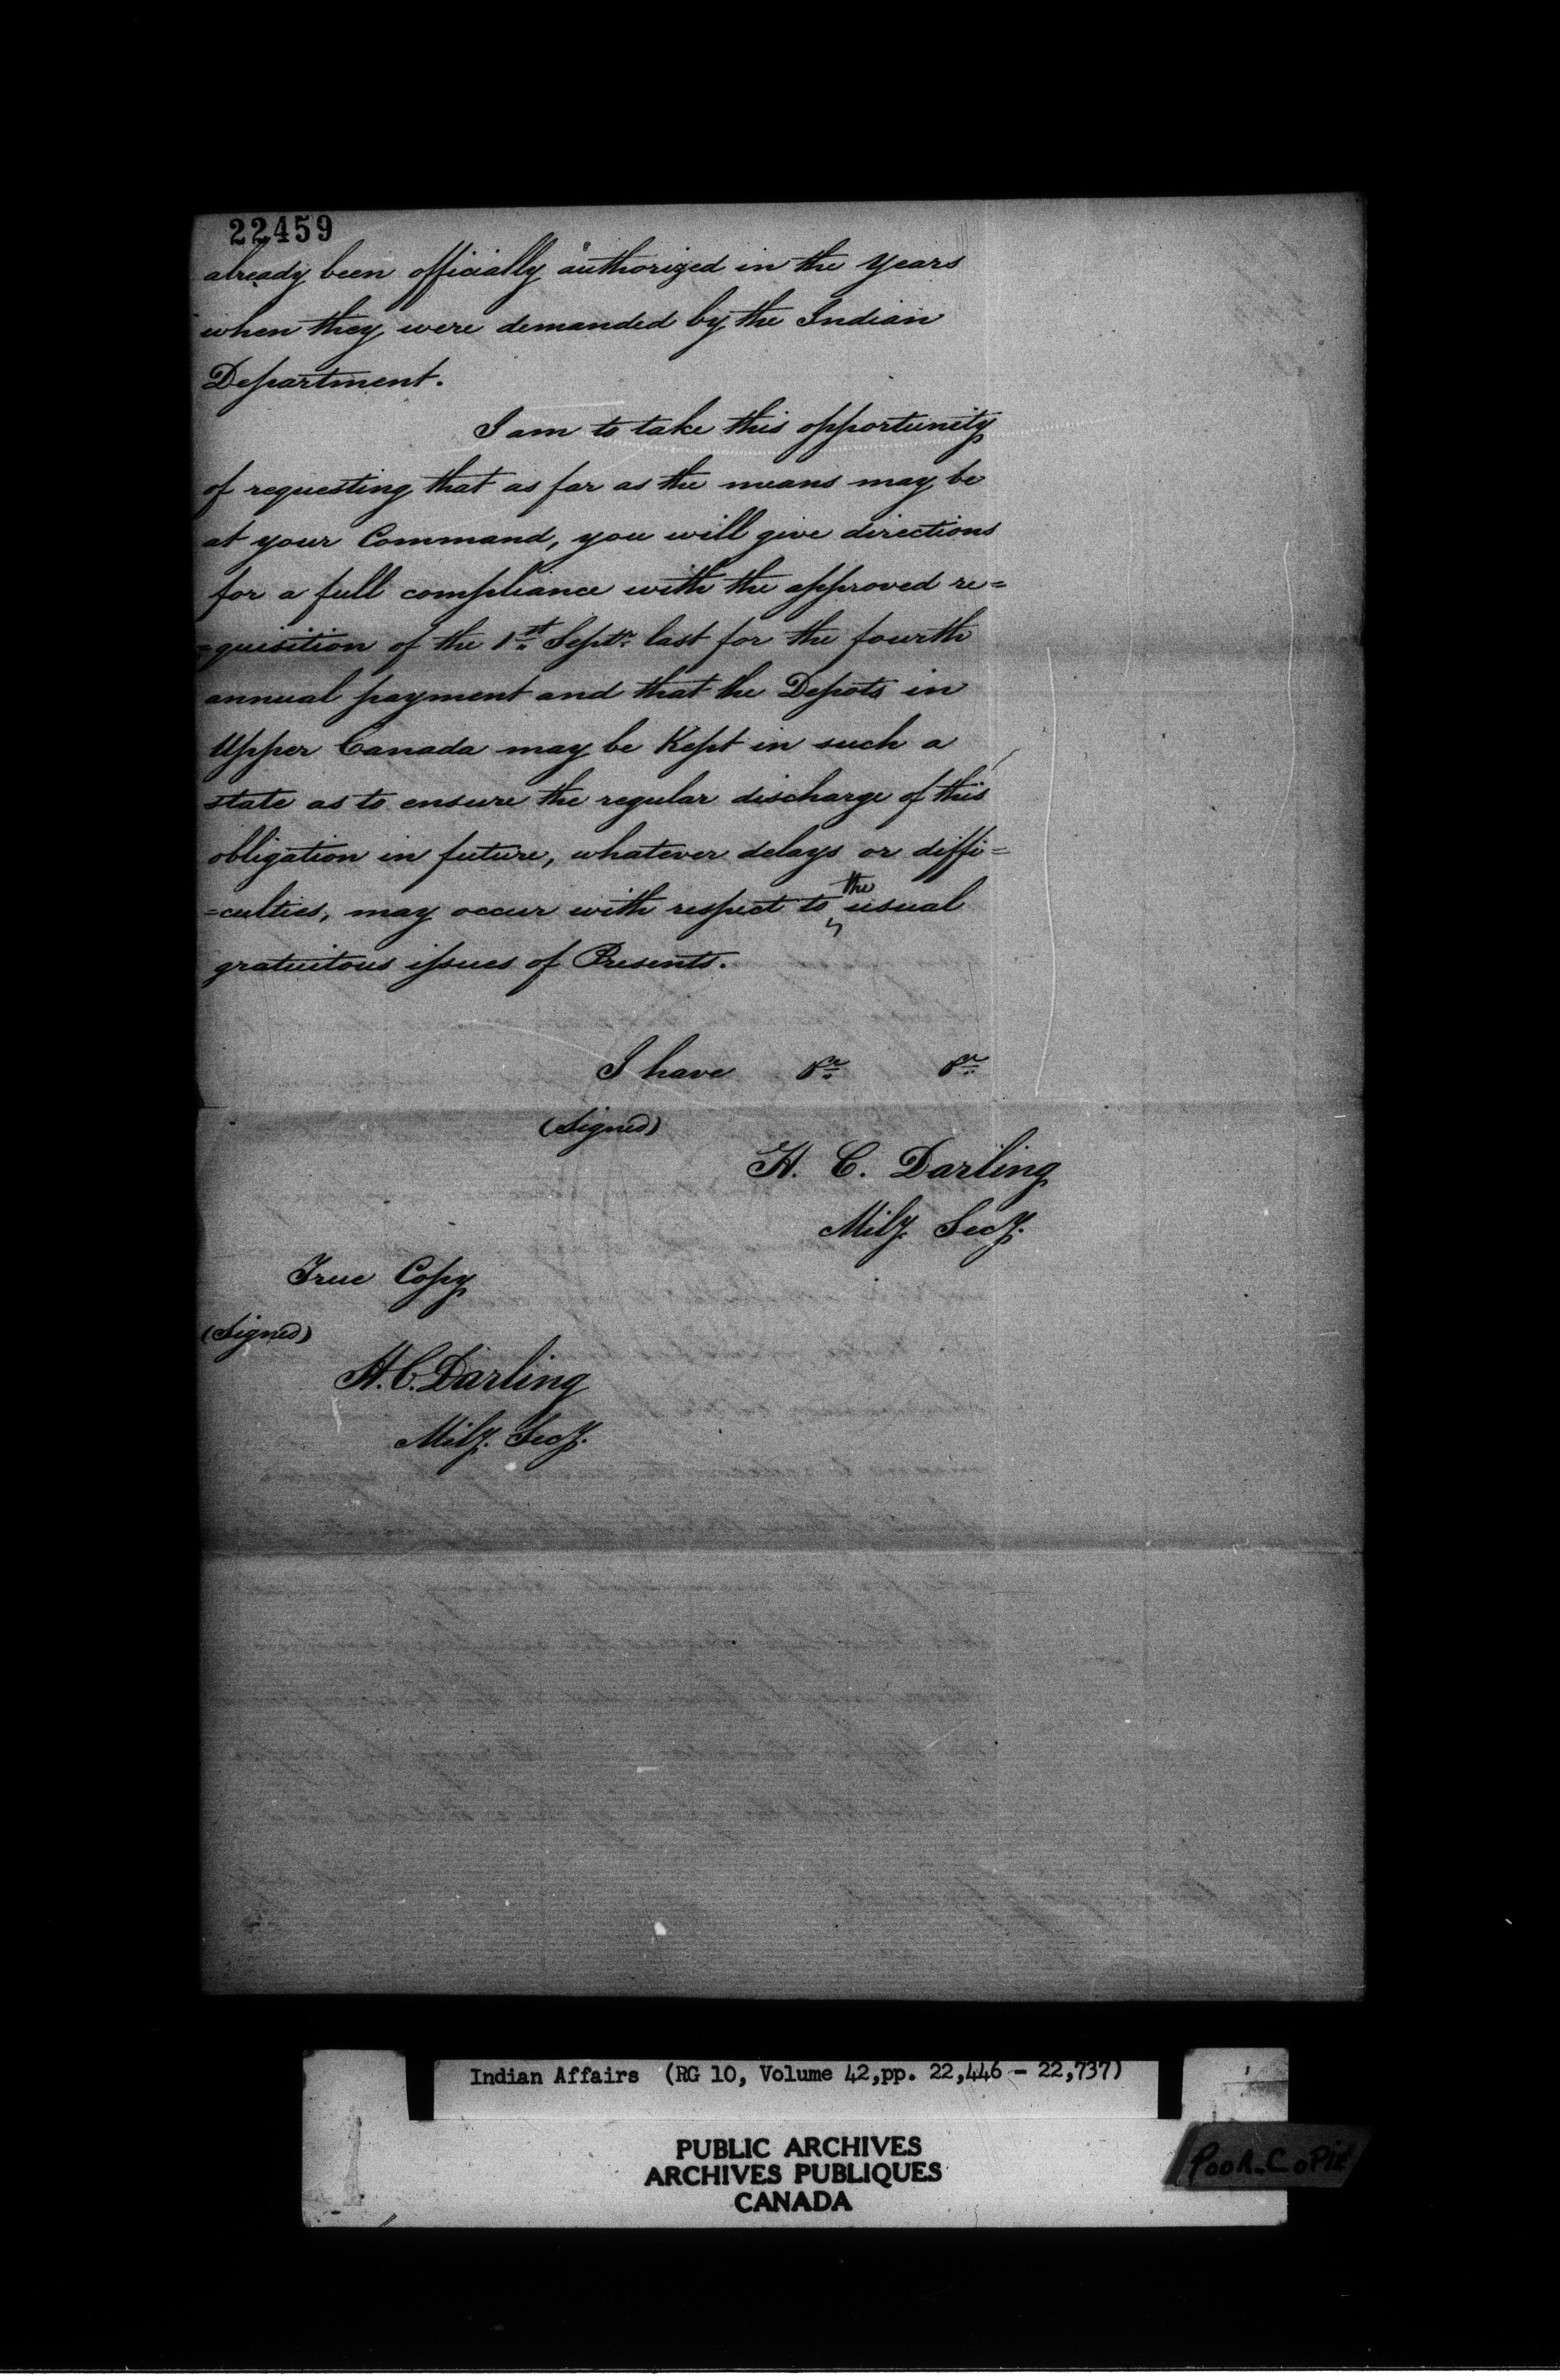 22459
already been officially authorized in the Years
when they were demanded by the Indian
Department.
I am to take this opportunity
of requesting that as far as the means may be
at your Command, you will give directions
for a full compliance with the approved re=
=quisition of the 1st Septr. last for the fourth
annual payment and that the Depots in
Upper Canada may be Kept in such a
state as to ensure the regular discharge of this
obligation in future, whatever delays or diffi=
=culties, may occur with respect to the usual
gratuitous issues of Presents.
I have &c &c
(Signed)
H. C. Darling
Mily. Secy.
True Copy
(Signed)
H. C. Darling
Mily. Secy.
Indian Affairs (RG 10, Volume 42, pp. 22,446 - 22,737)
PUBLIC ARCHIVES
ARCHIVES PUBLIQUES
CANADA
Poor Copie